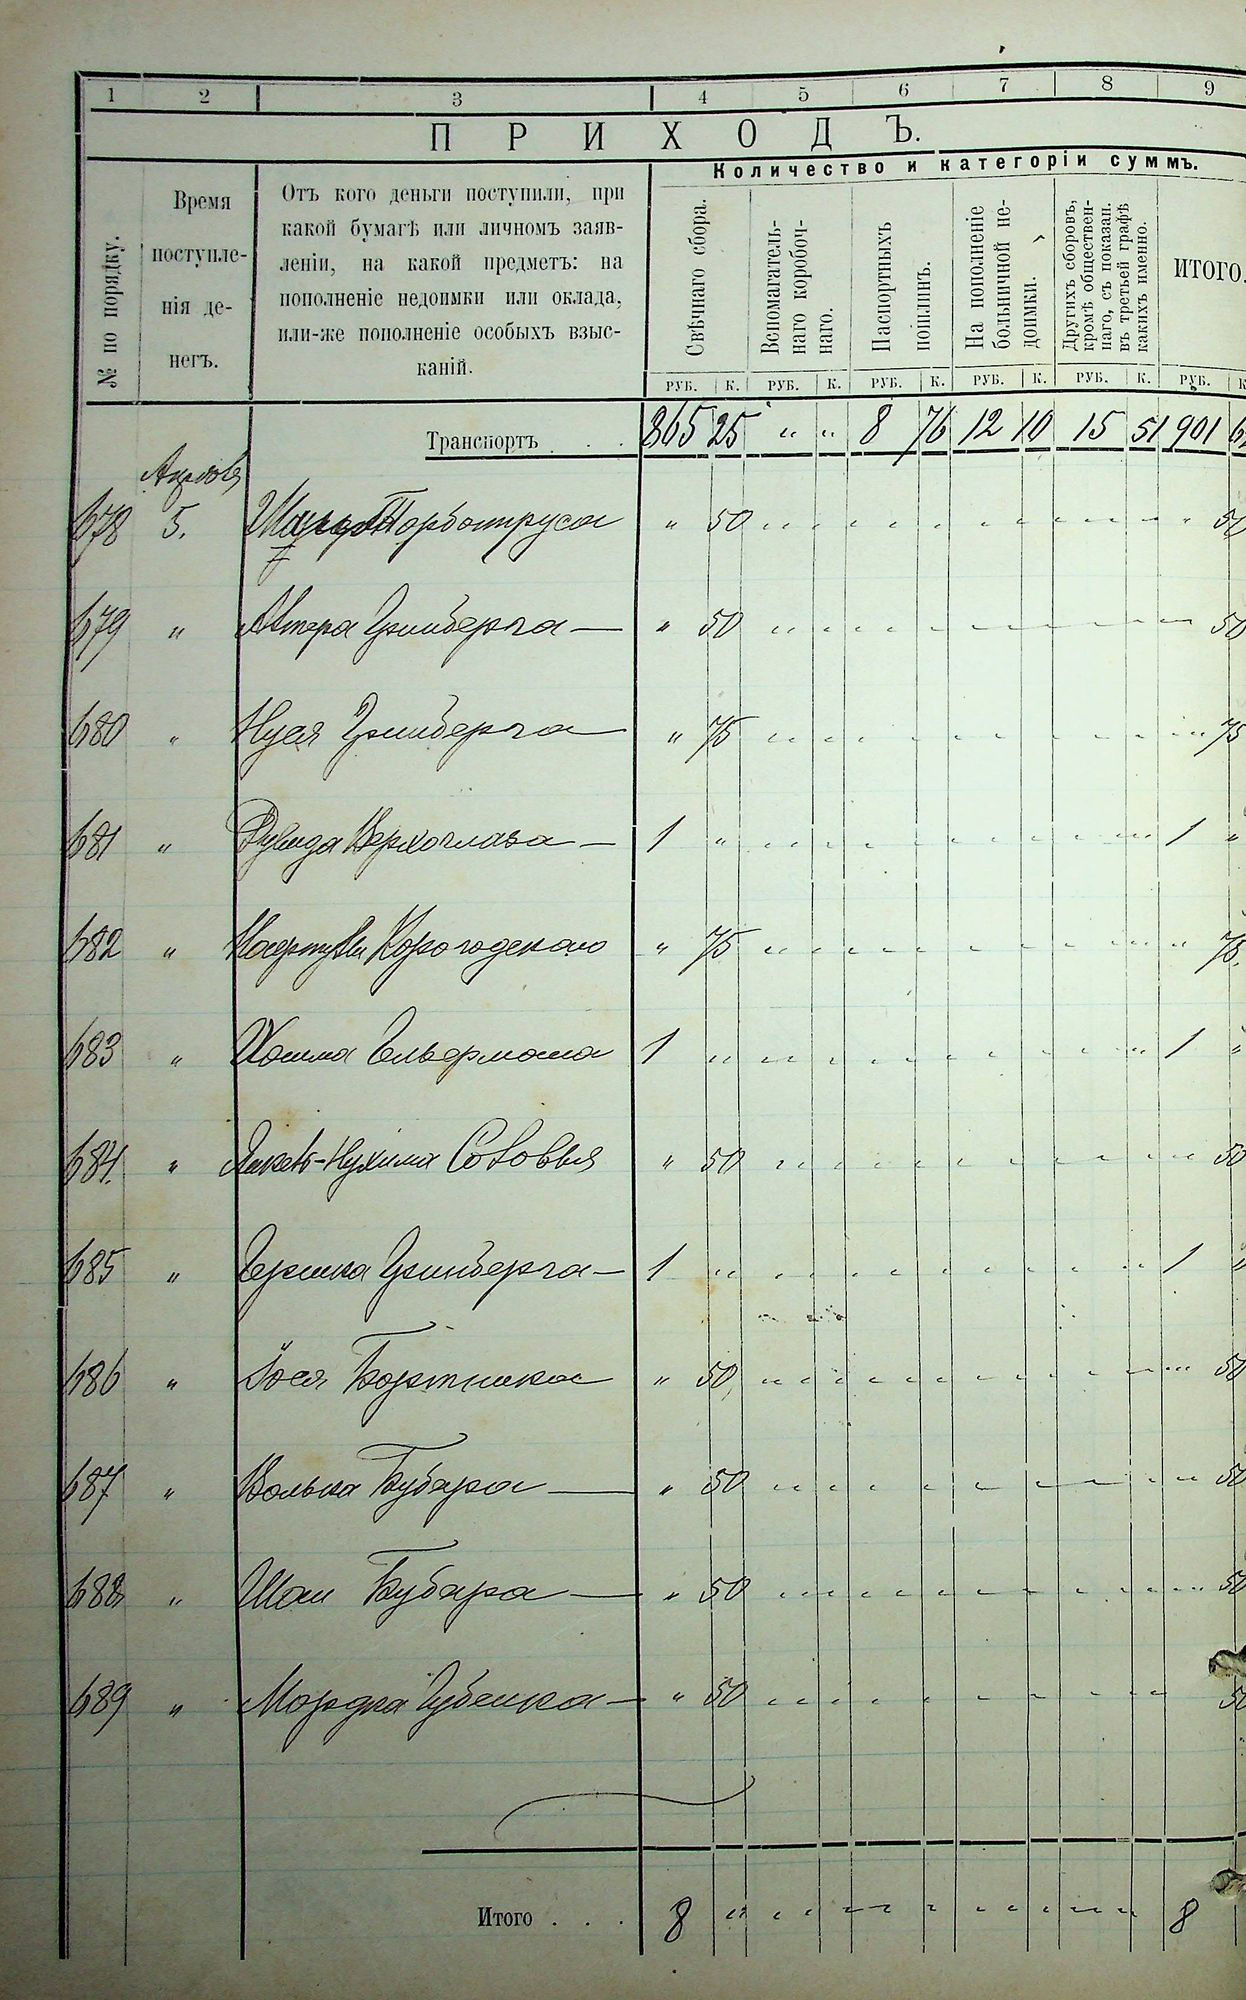 1 2 3 4 5 6 7 8 9
ПРИХОДЪ.
Количество и категоріи суммъ.
№ по порядку.
Время
поступле-
нія де-
негъ.
Отъ кого деньги поступили, при
какой бумагѣ или личномъ заяв-
леніи, на какой предметъ: на
пополненіе недоимки или оклада,
или-же пополненіе особыхъ взыс-
каній.
Свѣчнаго сбора.
Вспомагатель-
наго коробоч-
наго.
Паспортныхъ
пошлинъ.
На пополненіе
больничной не-
доимки.
Другихъ сборовъ,
кромѣ обществен-
наго, съ показан.
въ третьей графѣ
какихъ именно.
ИТОГО.
РУБ. К. РУБ. К. РУБ. К. РУБ. К. РУБ. К. РУБ. К
Транспортъ . . 865 25 " " 8 76 12 10 15 51 901
Апрѣля
678 5. " 50 " 50
679 " Гринберга — " 50 50
680 " Нуся Гринберга " 75 75
681 " Верхоглаза — 1 " 1 "
682 " " 75 " 75.
683 " 1 " 1 "
684. " Нухима Соловья " 50 50
685 " Гершка Гринберга — 1 " 1 "
686 " Іося Бортника " 50 50
687 " Волька Бубара — " 50 50
688 " Шаи Бубара — " 50 50
689 " Мордка — " 50 50
Итого . . . 8 " 8